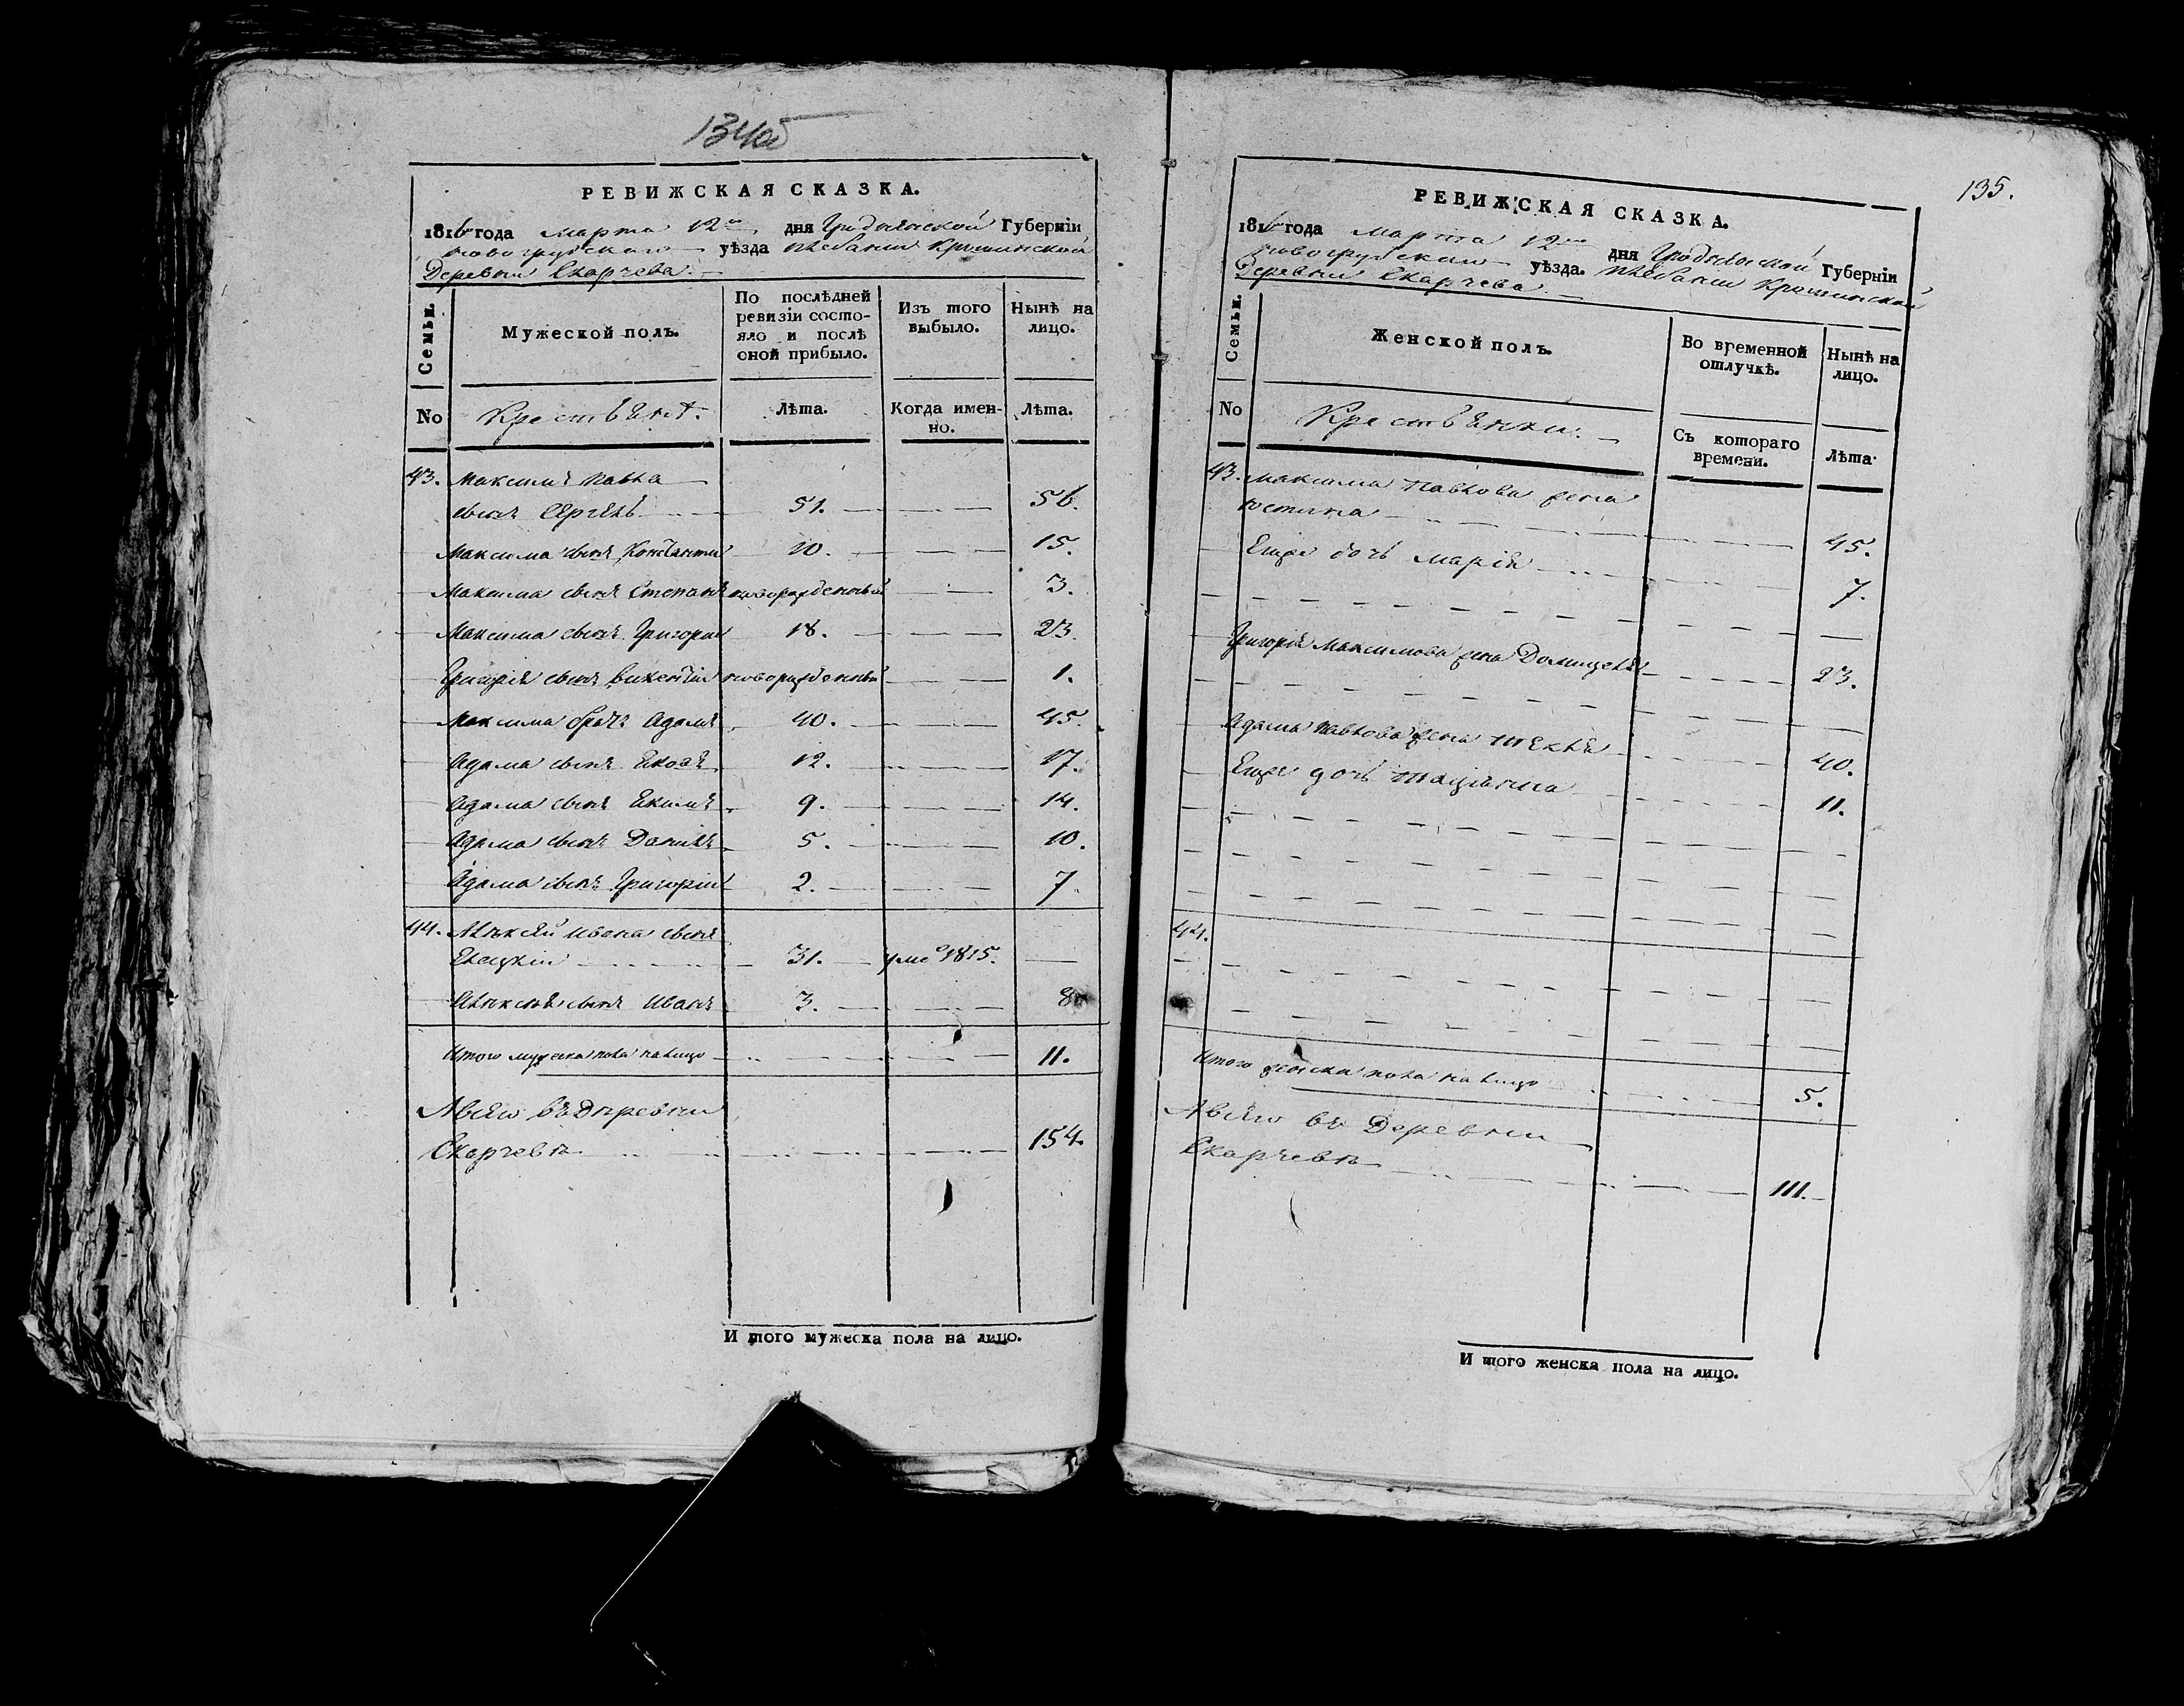 134об
РЕВИЖСКАЯ СКАЗКА.
1816 года Марта 12го дня Гродненской Губерніи
Новогрудскаго уѣзда плебаніи Крошинской
Деревни Скарчева.
Семьи.
Мужеской полъ.
По послѣдней ревизіи состояло и послѣ оной прибыло.
Изъ того выбыло.
Нынѣ на лицо.
No
Крестьянѣ.
Лѣта.
Когда именно.
Лѣта.
43. Максимъ Павла
сынъ 51. 56.
Максима сынъ Константи 10. 15.
Максима сынъ Степанъ новорожденный 3.
Максима сынъ Григорій 18. 23.
Григорія сынъ Викентій новорожденный 1.
Максима братъ Адамъ 40. 45.
Адама сынъ 12. 17.
Адама сынъ Якимъ 9. 14.
Адама сынъ Данила 5. 10.
Адама сынъ Григорій 2. 7.
44. Алѣксей Ивана сынъ
31. уме 1815.
Алѣксѣя сынъ Иванъ 3. 8
Итого мужеска пола налицо 11.
Авсяго въ Дѣревни
Скарчевѣ 154.
И того мужеска пола на лицо.
135.
РЕВИЖСКАЯ СКАЗКА.
1816 года Марта 12го дня Гродненской Губерніи
Новогрудскаго уѣзда. плебаніи Крошинской
Деревни Скарчева.
Семьи.
Женской полъ.
Во временной отлучкѣ.
Нынѣ на лицо.
No
Крестьянки.
Съ котораго времени.
Лѣта
43. Максима Павлова жена
Юстина 45.
Ещже дочь Марія 7.
Григорія Максимова жена Домицеля 23.
Адама Павлова жена Текля 40.
Ещже дочь Тацianna 11.
44.
Итого женска пола налицо 5.
Авсяго въ Деревни
Скарчевѣ 111.
И того женска пола на лицо.